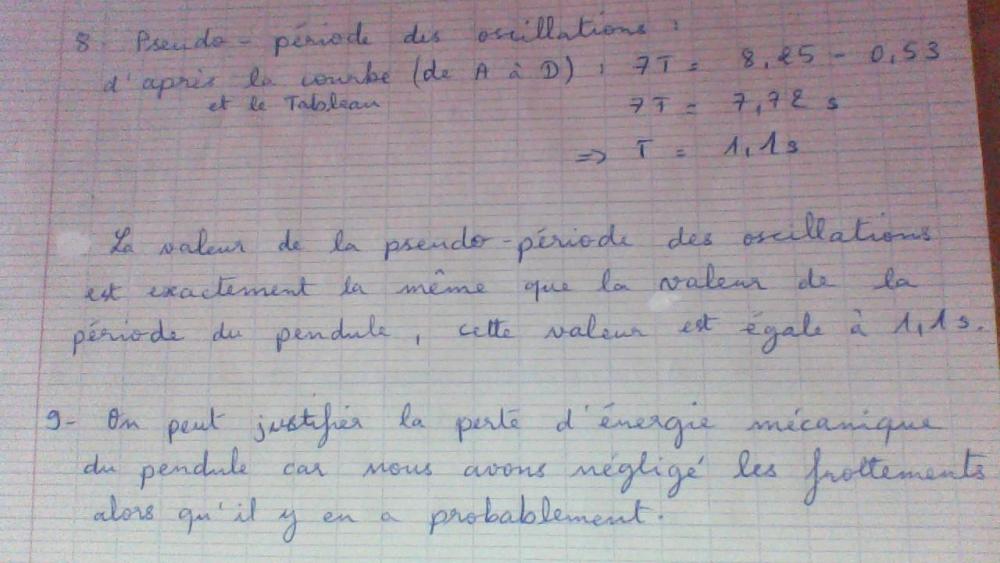 8. Pseudo-période des oscillations :
d'après la courbe (de A à D) : 7T = 8,25 - 0,53
et le Tableau 7T = 7,72 s
=> T = 1,1s
La valeur de la pseudo-période des oscillations
est exactement la même que la valeur de la
période du pendule, cette valeur est égale à 1,1s.
9- On peut justifier la perte d'énergie mécanique
du pendule car nous avons négligé les frottements
alors qu'il y en a probablement.